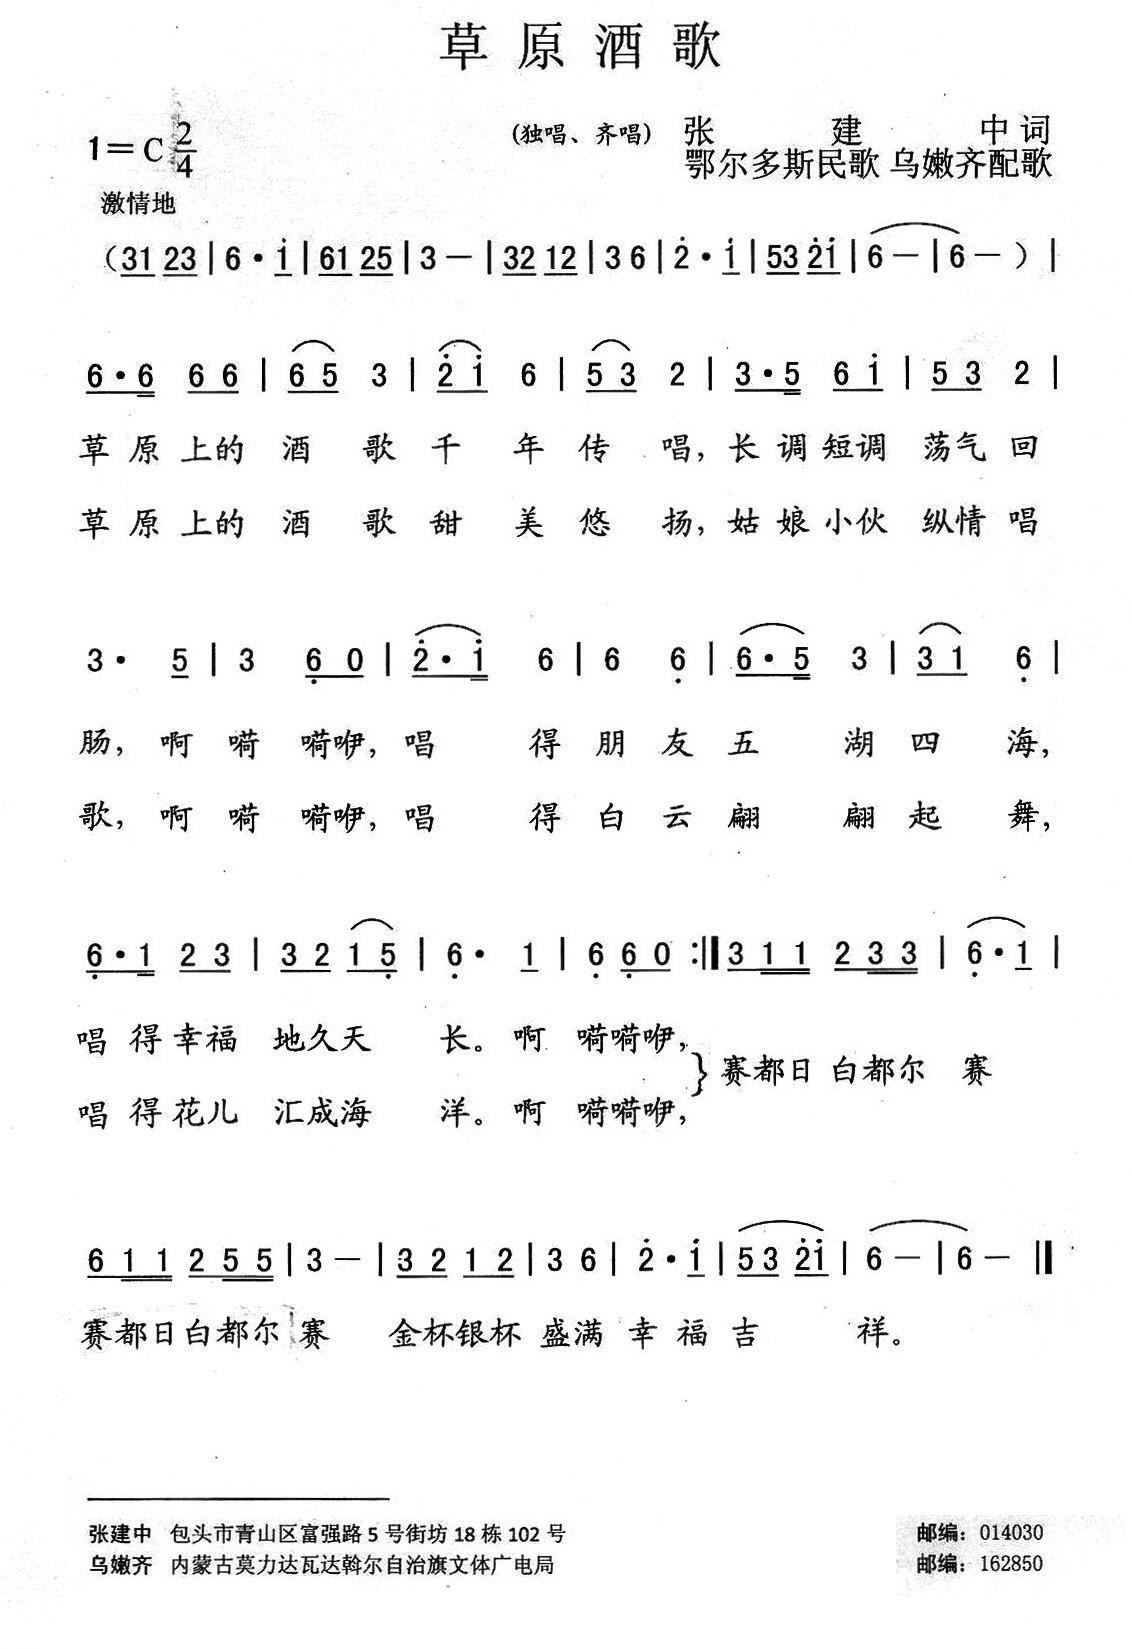 草原酒歌
1=C 2/4 (独唱、齐唱) 张建中词
鄂尔多斯民歌 乌嫩齐配歌
激情地
(31 23 | 6·i̇ | 61 25 | 3 – | 32 12 | 3 6 | 2̇·i̇ | 53 2̇i̇ | 6 – | 6 – ) |
6·6 6 6 | 6 5 3 | 2̇ i̇ 6 | 5 3 2 | 3·5 6 i̇ | 5 3 2 |
草原上的酒歌千年传唱,长调短调荡气回
草原上的酒歌甜美悠扬,姑娘小伙纵情唱
3· 5 | 3 6̣ 0 | 2̇·i̇ 6 | 6 6̣ | 6·5 3 | 3 1 6̣ |
肠,啊嗬嗬咿,唱得朋友五湖四海,
歌,啊嗬嗬咿,唱得白云翩翩起舞,
6̣·1 2 3 | 3 2 1 5̣ | 6̣· 1 | 6̣ 6̣ 0 :‖ 3 1 1 2 3 3 | 6̣·1 |
唱得幸福地久天长。啊嗬嗬咿,
} 赛都日白都尔赛
唱得花儿汇成海洋。啊嗬嗬咿,
6 1 1 2 5 5 | 3 – | 3 2 1 2 | 3 6 | 2̇·i̇ | 53 2̇i̇ | 6 – | 6 – ‖
赛都日白都尔赛 金杯银杯盛满幸福吉祥。
张建中 包头市青山区富强路5号街坊18栋102号 邮编:014030
乌嫩齐 内蒙古莫力达瓦达斡尔自治旗文体广电局 邮编:162850